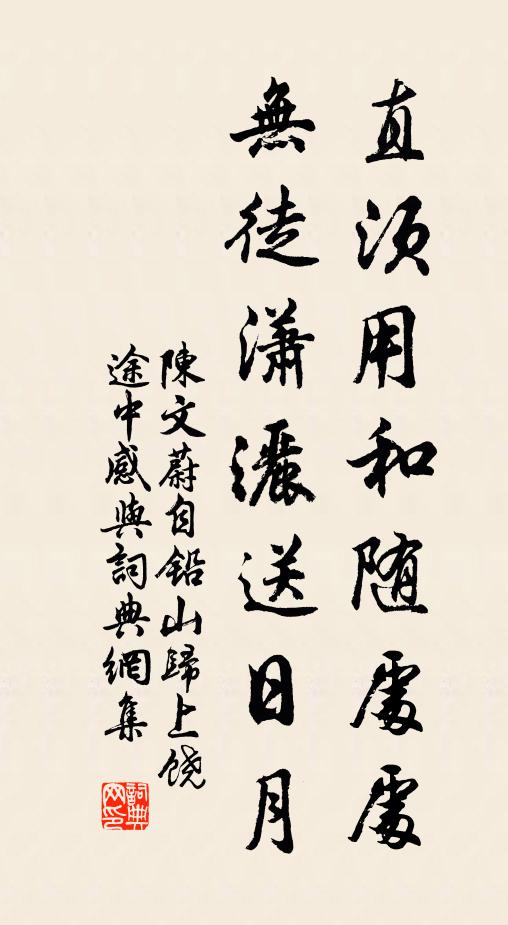 直須用和随處處
無徒瀟灑送日月
陳文蔚自鉛山歸上饶
途中感興詞典網集
詞典网印